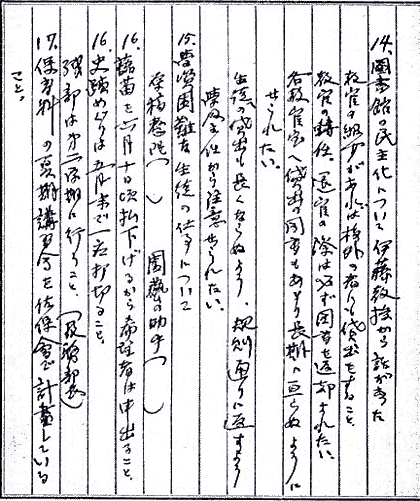 14. 図書館の民主化について伊藤教授から話があった
教官の紹介があれば格外の者にも貸出をすること
教官の転任、退官の際は必ず図書を返却されたい
各教官室へ貸出の図書もあまり長期に亘らぬように
せられたい。
生徒の貸出も長くならぬよう、規則通りに返すよう
主任から注意せられたい。
15. 学資困難な生徒の仕事について
( ) 園芸の助手( )
16. 藷苗を六月十日頃払下げるから希望者は申出ること、
16. 史蹟めぐりは五月末で一応打切ること
残部は第二学期に行うこと、
17. 保育科の夏期講習会を佐保会で計画している
こと。